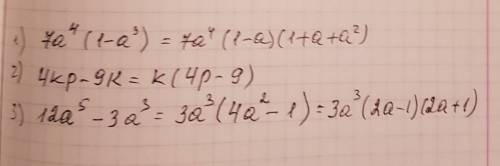 1) 7a⁴(1-a³) = 7a⁴(1-a)(1+a+a²)
2) 4кp-9к = к(4p-9)
3) 12a⁵-3a³ = 3a³(4a²-1) = 3a³(2a-1)(2a+1)